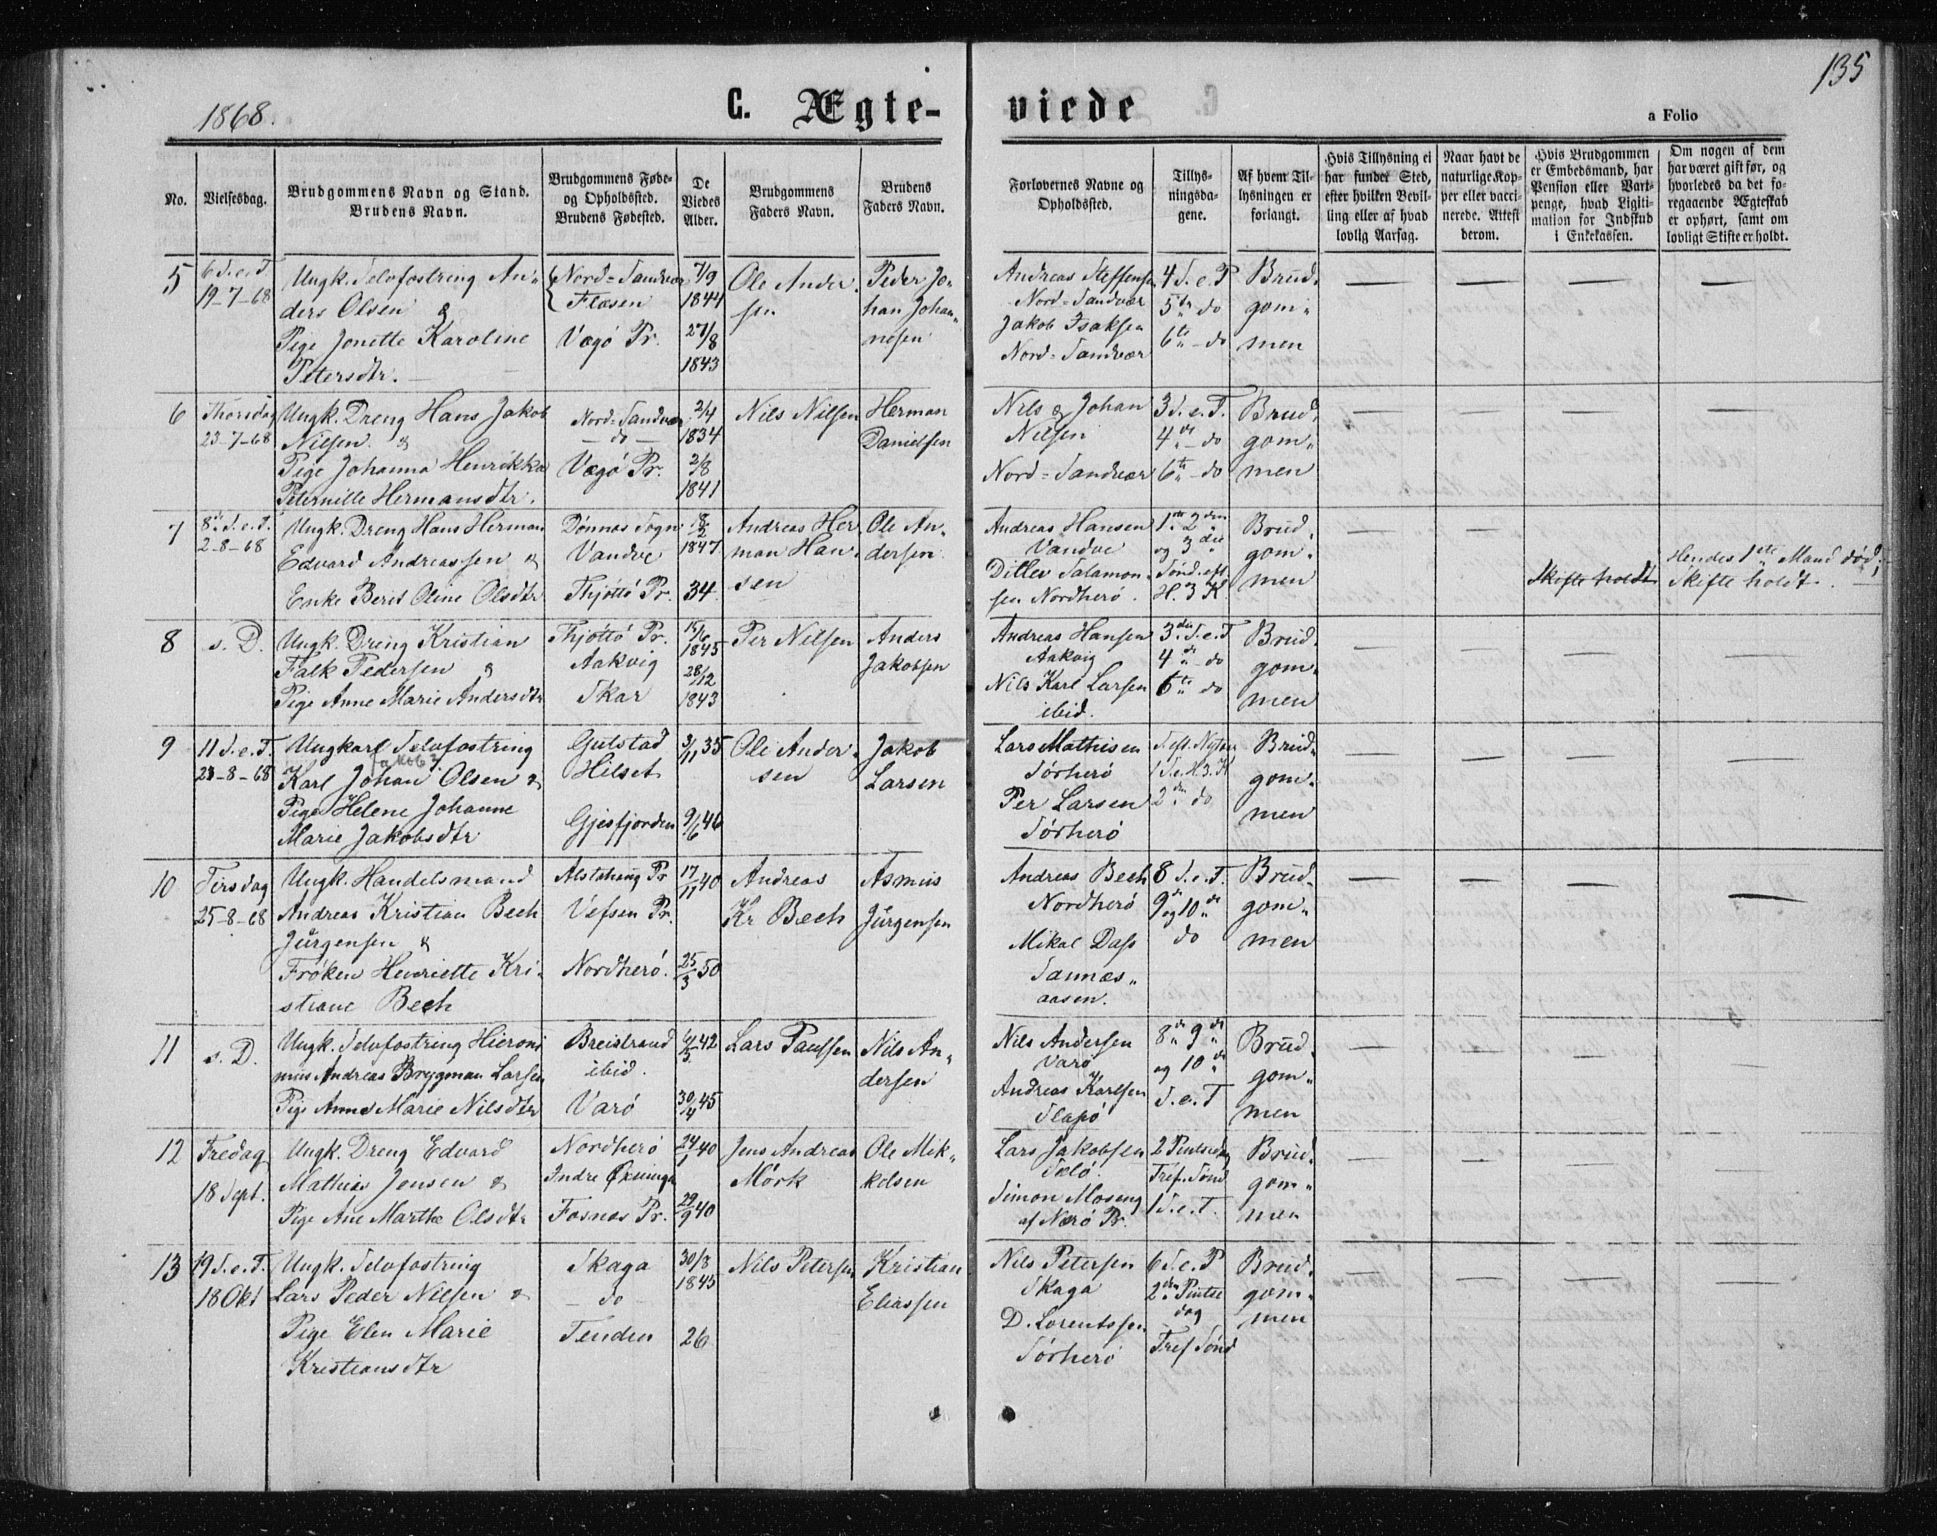 1868.
C. Ægte-
viede
135
a Folio
No.
Vielsesdag.
Brudgommens Navn og Stand.
Brudens Navn.
Brudgommens Føde-
og Opholdssted.
Brudens Fødested.
De
Viedes
Alder.
Brudgommens
Faders Navn.
Brudens
Faders Navn.
Forlovernes Navne og
Opholdssted.
Tillys-
ningsda-
gene.
Af hvem Til-
lysningen er
forlangt.
Hvis Tillysning ei
har funder Sted,
efter hvilken Bevil-
ling eller af hvad
lovlig Aarsag.
Naar havt de
naturlige Kop-
per eller vacci-
nerede. Attest
derom.
Hvis Brudgommen
er Embedsmand, har
Pension eller Vart-
penge, hvad Ligiti-
mation for Indskud
i Enkekassen.
Om nogen af dem
har været gift før, og
hvorledes da det fo-
regaaende Ægteskab
er ophørt, samt om
lovligt Skifte er holdt.
5
6 S. e. T.
19-7-68
Ungk. Selvfostring An-
ders Olsen &
Pige Jonette Karoline
Petersdtr.
Nord-Sandvær
Flæsen
Vægö Pr.
7/9
1844
27/8
1843
Ole Ander-
sen
Peder Jo-
han Johan-
nesen
Andreas Steffensen
Nord-Sandvær
Jakob Isaksen
Nord-Sandvær
4 S. e. P
5te do
6te do
Brud-
gom-
men
6
Thorsdag
23-7-68
Ungk. Dreng Hans Jakob
Nilsen &
Pige Johanna Henrikka
Peternille Hermansdtr.
Nord-Sandvær
- do -
Vægö Pr.
2/4
1834
2/8
1841
Nils Nilsen
Herman
Danielsen
Nils & Johan
Nilsen
Nord-Sandvær
3 S. e. T.
4de do
6te do
Brud-
gom-
men
7
8de S. e. T.
2-8-68
Ungk. Dreng Hans Herman
Edvard Andreassen &
Enke Berit Oline Olsdtr
Dønnas Sogn
Vandve
Thjöttö Pr.
8/2
1847
34
Andreas Her-
man Han-
sen
Ole An-
dersen
Andreas Hansen
Vandve
Ditlev Salamon-
sen Nordherö.
1ste 2den
og 3die
Sönd. eft
H. 3 K.
Brud-
gom-
men
Skifte holdt
Hendes 1ste Mand död;
Skifte holdt.
8
s. D.
Ungk. Dreng Kristian
Falk Pedersen &
Pige Anne Marie Andersdtr
Thjöttö Pr.
Aakvig
Skar
15/6
1845
28/12
1843
Per Nilsen
Anders
Jakobsen
Andreas Hansen
Aakvig
Nils Karl Larsen
ibid.
3die S. e. T
4de do
6te do
Brud-
gom-
men
9
11 S. e. T.
23-8-68
Ungkarl Selvfostring
Jakob
Karl Johan Olsen &
Pige Helene Johanne
Marie Jakobsdtr
Gulstad
Hilset
Gjesfjorden
3/11 35
9/6 46
Ole Ander-
sen
Jakob
Larsen
Lars Mathisen
Sörherö
Per Larsen
Sörherö
S. eft. Nytaar
1 S. e. H. 3. K
2den do
Brud-
gom-
men
10
Tirsdag
25-8-68
Ungk. Handelsmand
Andreas Kristian Bech
Jürgensen &
Fröken Henriette Kri-
stiane Bech
Alstahaug Pr
Vefsen Pr.
Nordherö.
17/11 40
25/3 50
Andreas
Kr Bech
Asmus
Jürgensen
Andreas Bech
Nordherö
Mikal Dass
Sannæs-
aasen.
8 S. e. T.
9 og 10de
do
Brud-
gom-
men
11
s. D.
Ungk. Selvfostring Hieroni-
mus Andreas Brygman Larsen
Pige Anne Marie Nilsdtr
Breistrand
ibid.
Varö
42
30/4 45
Lars Paulsen
Nils An-
dersen
Nils Andersen
Varö
Andreas Karlsen
Slapö
8de 9de
og 10de
S. e. T
Brud-
gom-
men
12
Fredag
18 Sept.
Ungk. Dreng Edvard
Mathias Jensen &
Pige Ane Marthe Olsdtr
Nordherö
Indre Øxninga
Fosnas Pr.
24/1 40
29/9 40
Jens Andreas
Mörk
Ole Mik-
kelsen
Lars Jakobsen
Simon Moseng
af Nærö Pr.
2 Pintsedag
Tref. Sönd
1 S. e. T.
Brud-
gom-
men
13
19 S. e. T.
18 Okt
Ungk. Selvfostring
Lars Peder Nilsen &
Pige Elen Marie
Kristiansdtr
Skaga
- do -
Tenden
30/8
1845
26
Nils Petersen
Kristian
Eliassen
Nils Petersen
Skaga
D. Lorentssen
Sörherö
6 S. e. P
2den Pintse
dag
Tref Sönd
Brud-
gom-
men